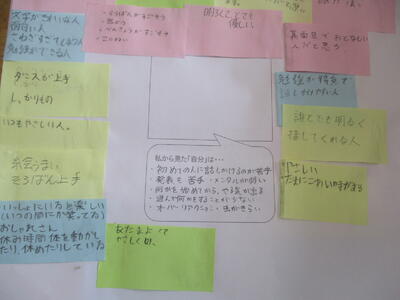 文字がきれいな人
面白い人
勉強ができる人
そろばんがすごそう
明るくてとても
優しい
真面目でおとなしい
人だと思う
ダンスが上手
しっかりもの
いつもやさしい人。
勉強が得意で
誰とでも明るく
接してくれる人
絵うまい
そろばん上手
やさしい
たまにこわい時がある
いっしょにいると楽しい
(いつの間にか笑ってる)
おしゃれさん
休み時間体を動かし
たり、休めたりしている
あたまよくて
やさしい
私から見た「自分」は…
・初めての人に話しかけるのが苦手
・発表も苦手・メンタルが弱い
・何かを始めてから、やる気が出る
・進んで何かをすることが少ない
・オーバーリアクション・虫がきらい